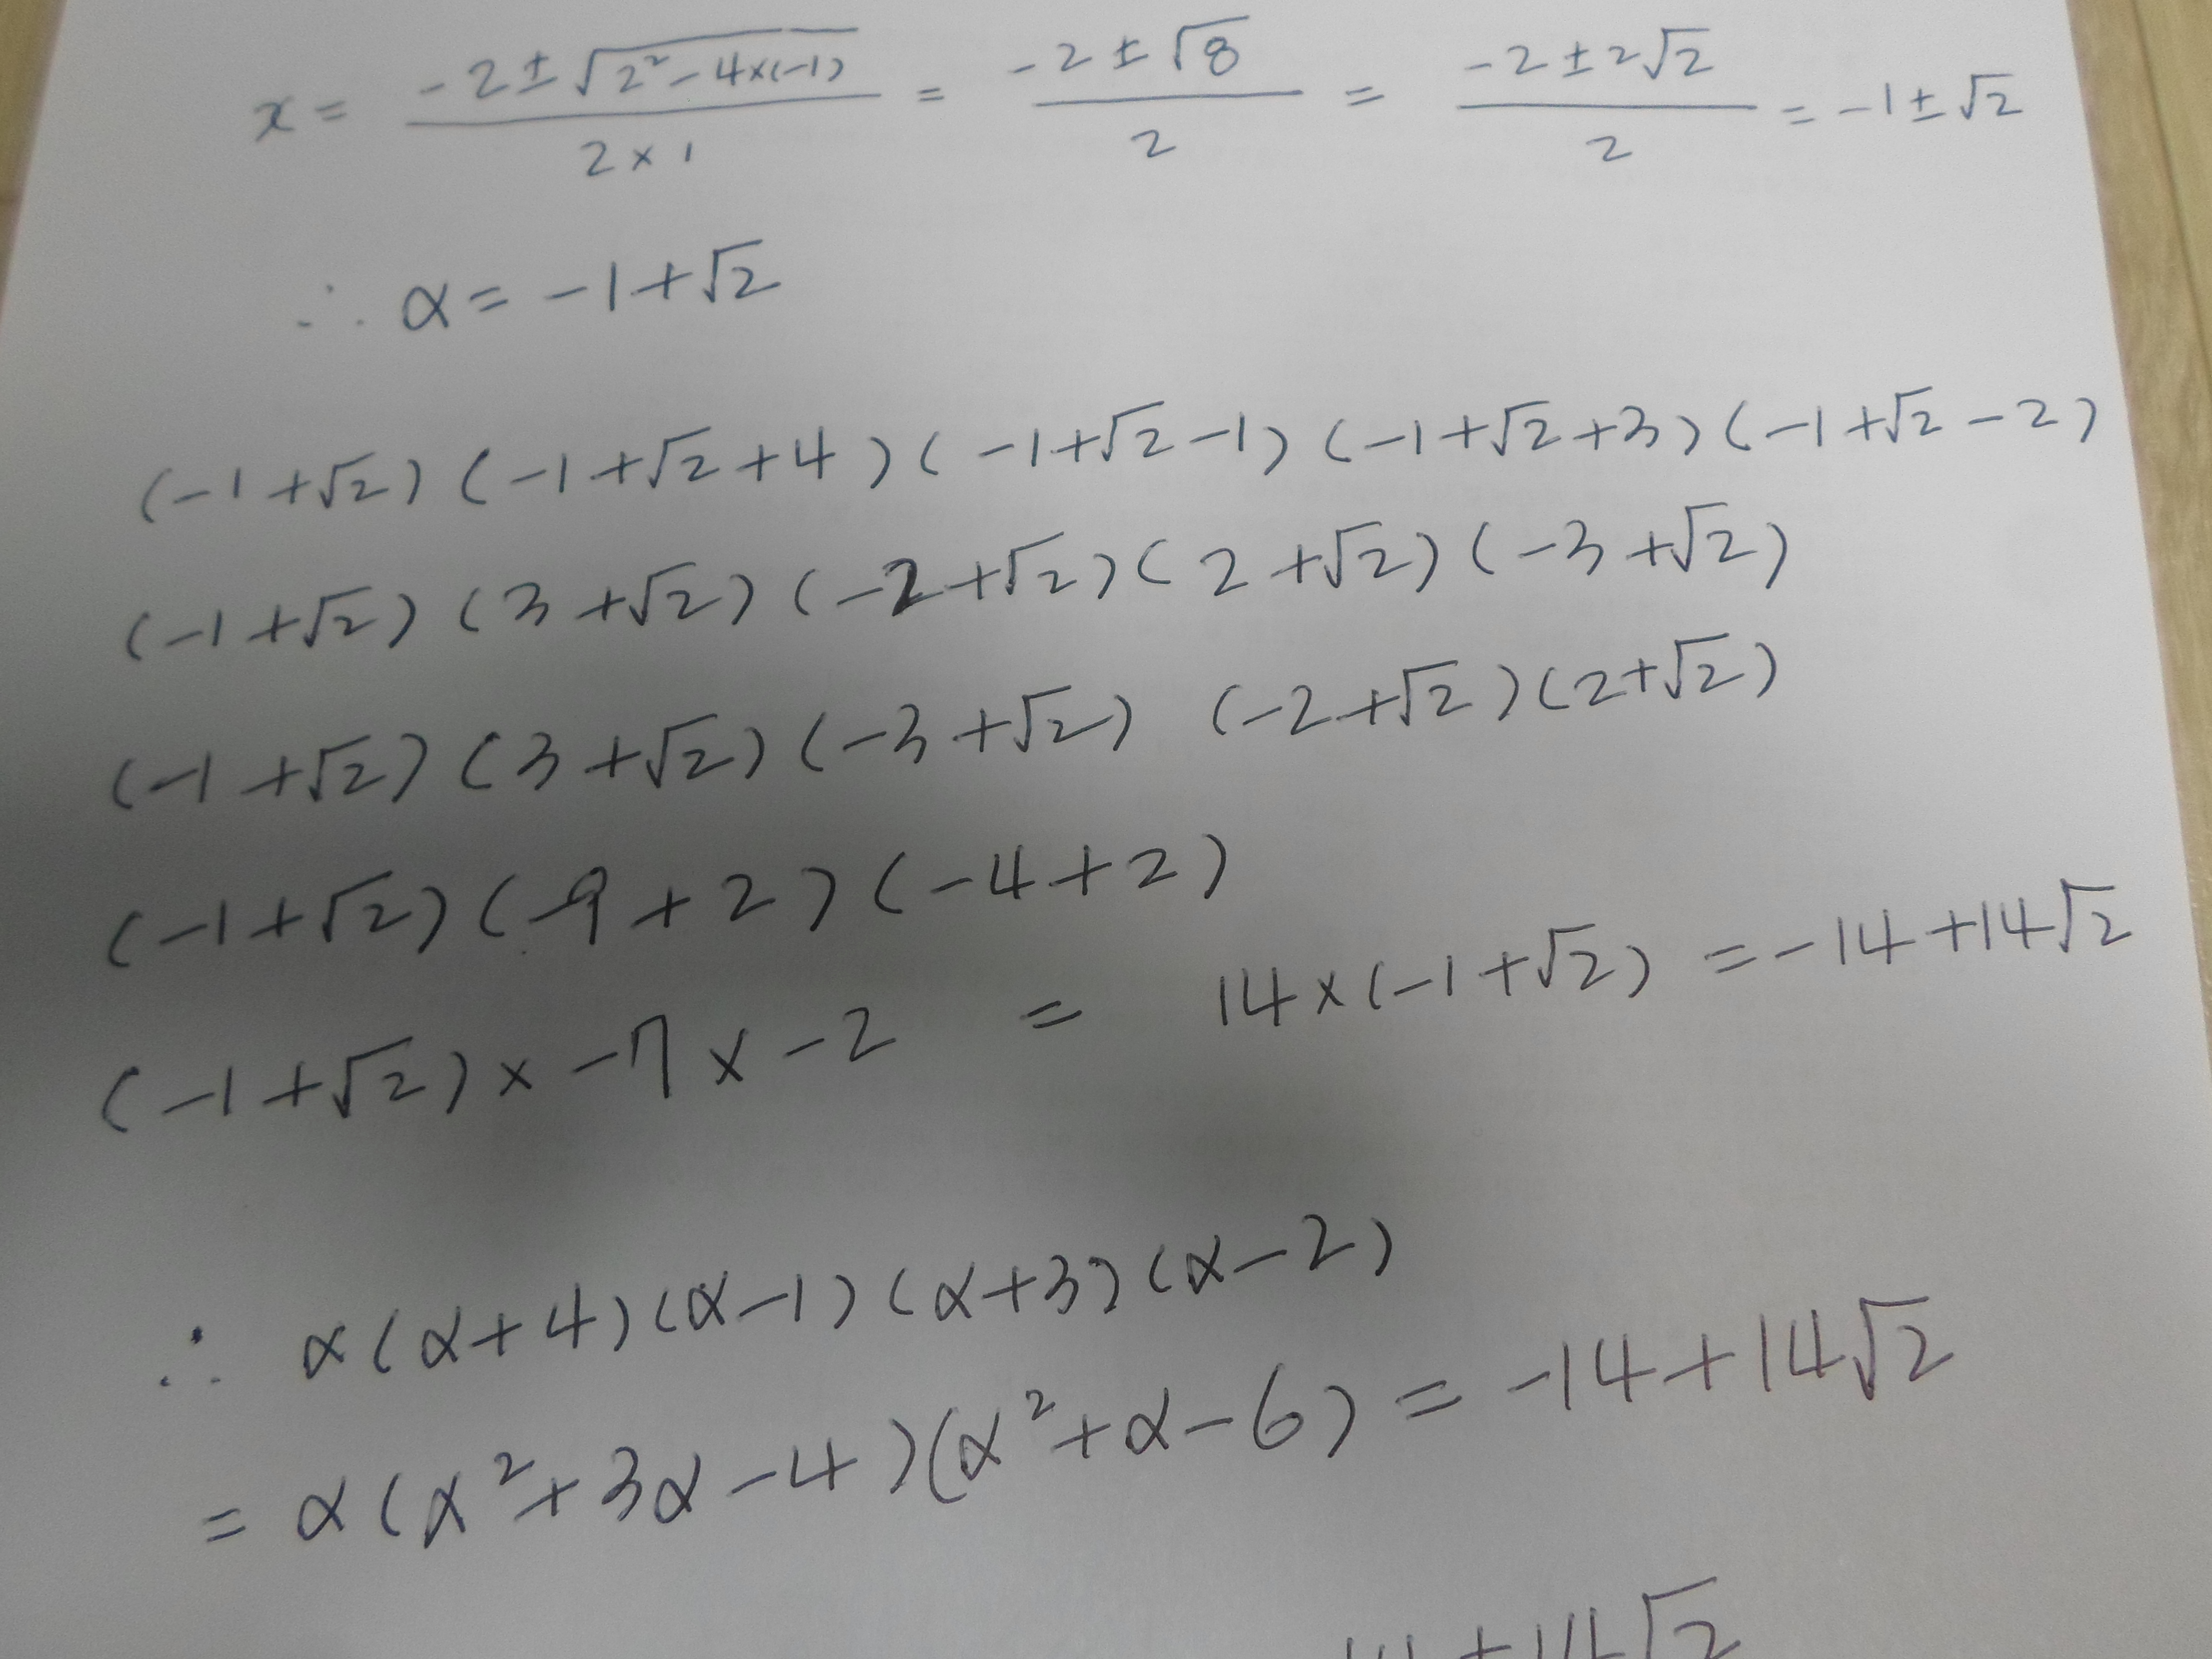 x = (-2±√(2²-4×(-1)))/(2×1) = (-2±√8)/2 = (-2±2√2)/2 = -1±√2
∴ α = -1+√2
(-1+√2)(-1+√2+4)(-1+√2-1)(-1+√2+3)(-1+√2-2)
(-1+√2)(3+√2)(-2+√2)(2+√2)(-3+√2)
(-1+√2)(3+√2)(-3+√2) (-2+√2)(2+√2)
(-1+√2)(-9+2)(-4+2)
(-1+√2)×-7×-2 = 14×(-1+√2) = -14+14√2
∴ α(α+4)(α-1)(α+3)(α-2)
= α(α²+3α-4)(α²+α-6) = -14+14√2
14+14√2